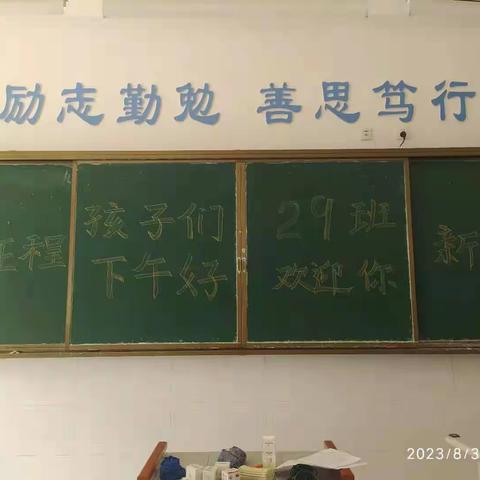 励志勤勉 善思笃行
孩子们
下午好
29班
欢迎你
征程
新
2023/8/3